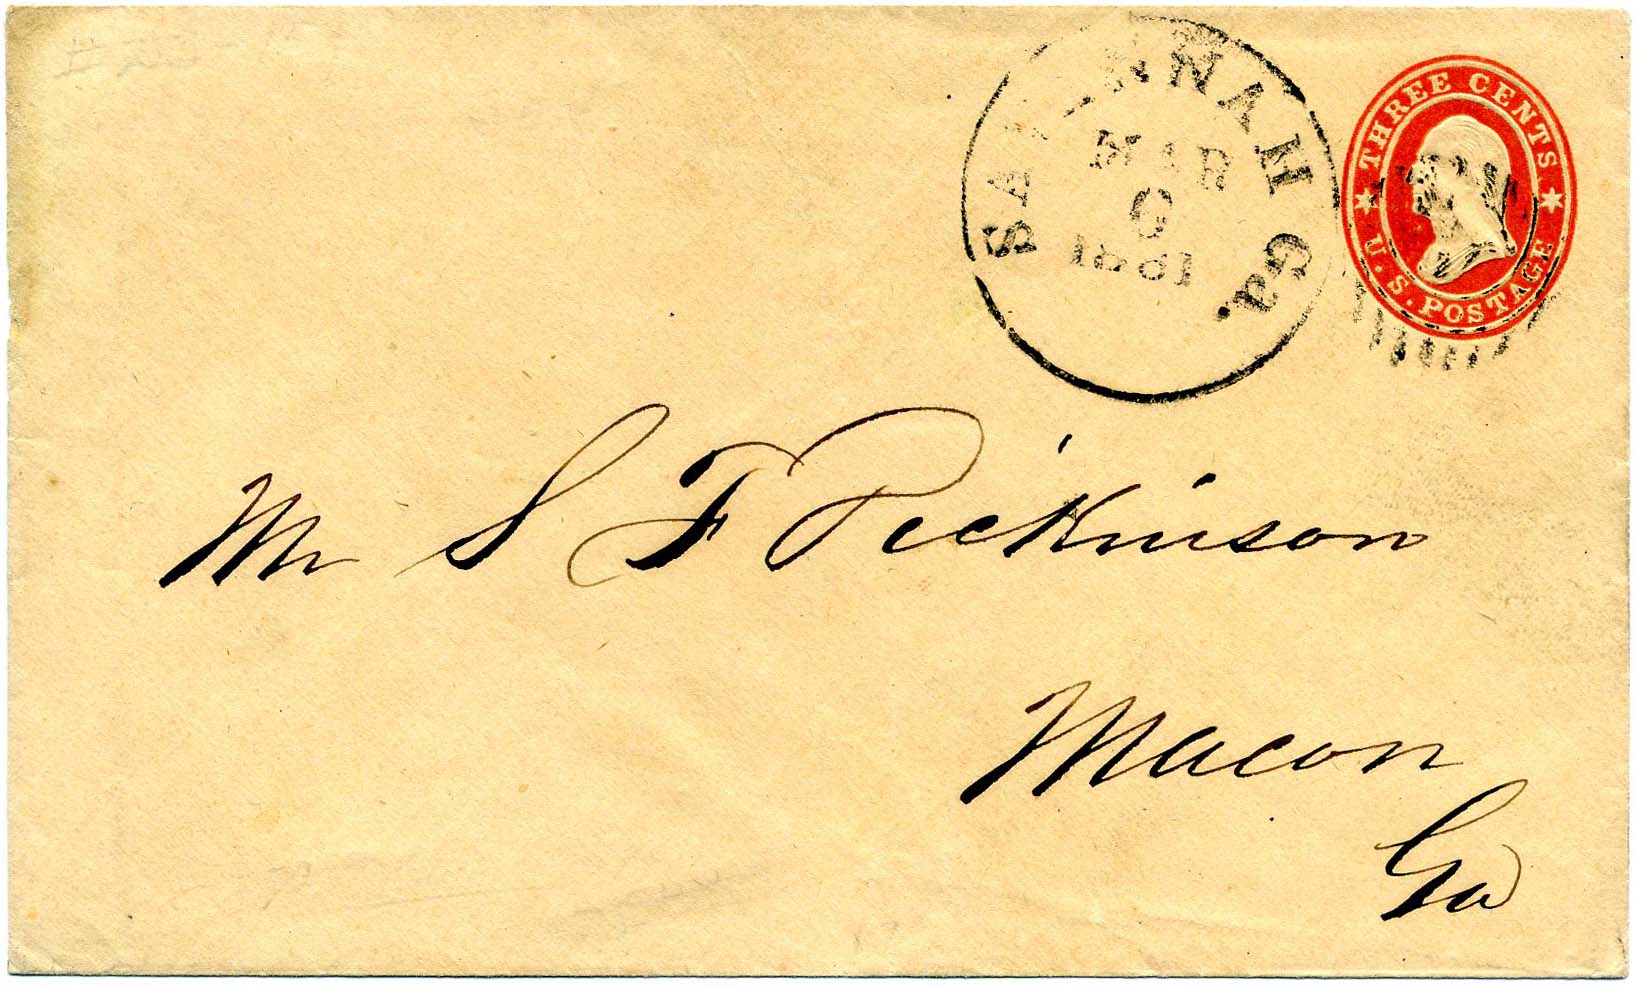 SAVANNAH Ga.
MAR
1861
THREE CENTS
U.S. POSTAGE
Mr S F Dickinson
Macon
Ga